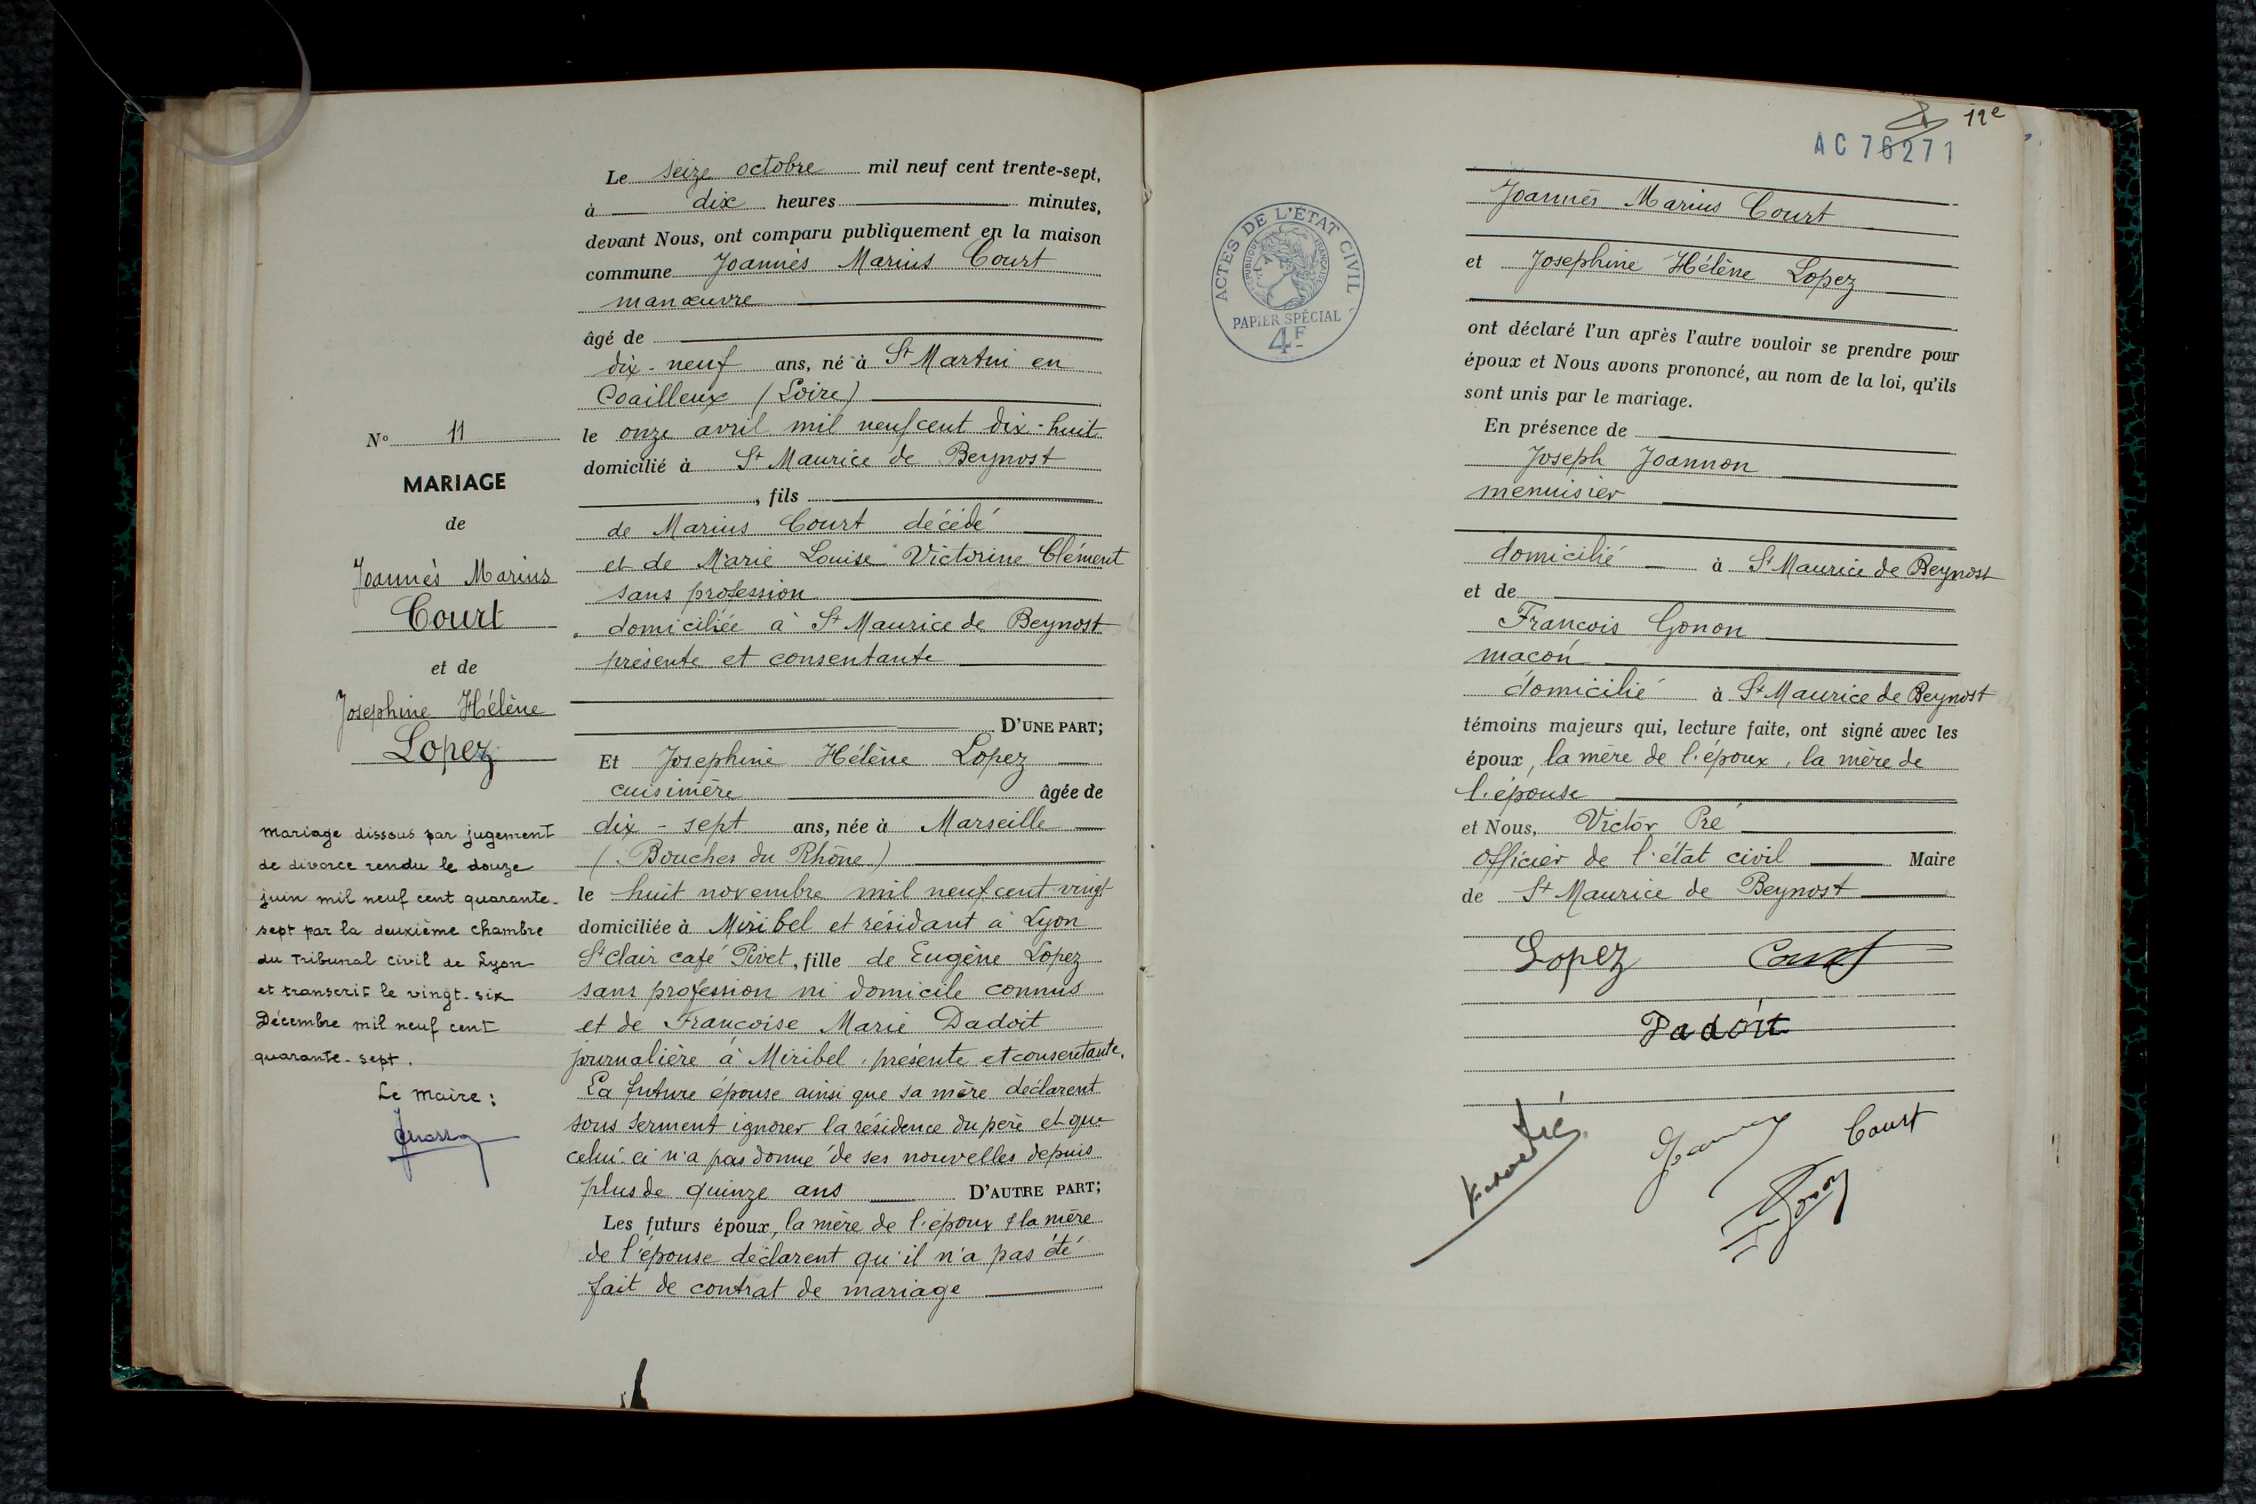 N° 11
MARIAGE
de
Joannès Marius
Court
et de
Josephine Hélène
Lopez
mariage dissous par jugement
de divorce rendu le douze
juin mil neuf cent quarante-
sept par la deuxième chambre
du Tribunal civil de Lyon
et transcrit le vingt-six
Décembre mil neuf cent
quarante-sept.
Le maire :
Le seize octobre mil neuf cent trente-sept,
à dix heures minutes,
devant Nous, ont comparu publiquement en la maison
commune Joannès Marius Court
manœuvre
âgé de
dix-neuf ans, né à St Martin en
Coailleux (Loire)
le onze avril mil neuf cent dix-huit
domicilié à St Maurice de Beynost
, fils
de Marius Court décédé
et de Marie Louise Victorine Clément
sans profession
domiciliée à St Maurice de Beynost
présente et consentante
D'UNE PART;
Et Josephine Hélène Lopez
cuisinière âgée de
dix-sept ans, née à Marseille
(Bouches du Rhône)
le huit novembre mil neuf cent vingt
domiciliée à Miribel et résidant à Lyon
St Clair café Pivet, fille de Eugène Lopez
sans profession ni domicile connus
et de Francoise Marie Dadoit
journalière à Miribel, présente et consentante.
La future épouse ainsi que sa mère déclarent
sous serment ignorer la résidence du père et que
celui-ci n'a pas donné de ses nouvelles depuis
plus de quinze ans D'AUTRE PART;
Les futurs époux, la mère de l'époux & la mère
de l'épouse déclarent qu'il n'a pas été
fait de contrat de mariage
12e
AC 76271
ACTES DE L'ÉTAT CIVIL
RÉPUBLIQUE FRANÇAISE
PAPIER SPÉCIAL
4F
Joannès Marius Court
et Josephine Hélène Lopez
ont déclaré l'un après l'autre vouloir se prendre pour
époux et Nous avons prononcé, au nom de la loi, qu'ils
sont unis par le mariage.
En présence de
Joseph Joannon
menuisier
domicilié à St Maurice de Beynost
et de
Francois Gonon
macon
domicilié à St Maurice de Beynost
témoins majeurs qui, lecture faite, ont signé avec les
époux, la mère de l'époux, la mère de
l'épouse
et Nous, Victor Pré
officier de l'état civil Maire
de St Maurice de Beynost
Lopez Court
Dadoit
Court
Gonon